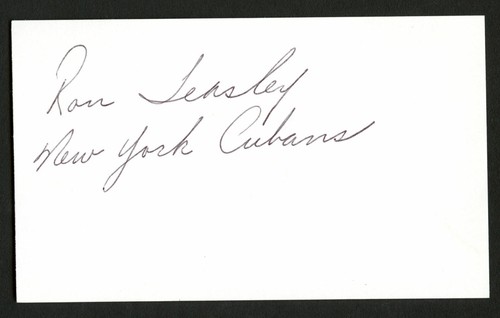 Ron Teasley
New York Cubans